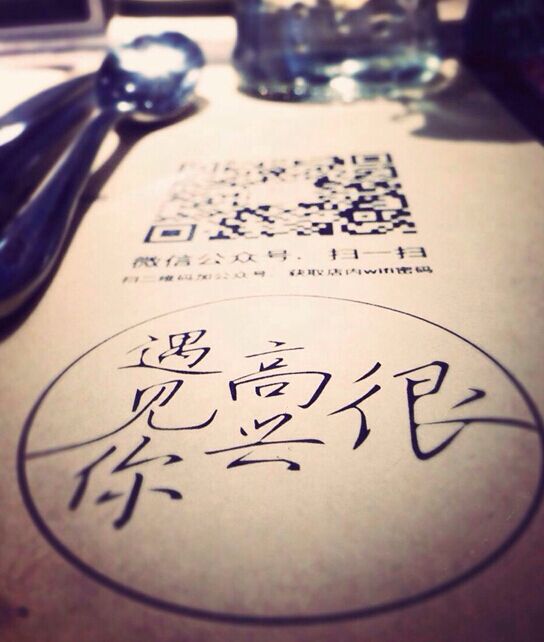 微信公众号，扫一扫
扫二维码加公众号，获取店内wifi密码
很
高兴
遇见你